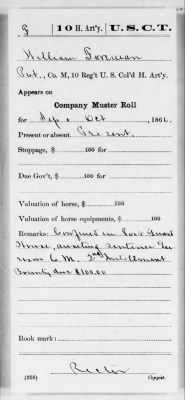 10 H. Art'y. U.S.C.T.
William
Pvt., Co. M, 10 Reg't U. S. Col'd H. Art'y.
Appears on
Company Muster Roll
for Sep. & Oct, 186
Present or absent Present
Stoppage, $ 100 for
Due Gov't, $ 100 for
Valuation of horse, $ 100
Valuation of horse equipments, $ 100
Remarks: Confined in Post Guard
House, awaiting sentence
C. M. 2nd Installment
Bounty due $100.00
Book mark:
(356)
Copyist.